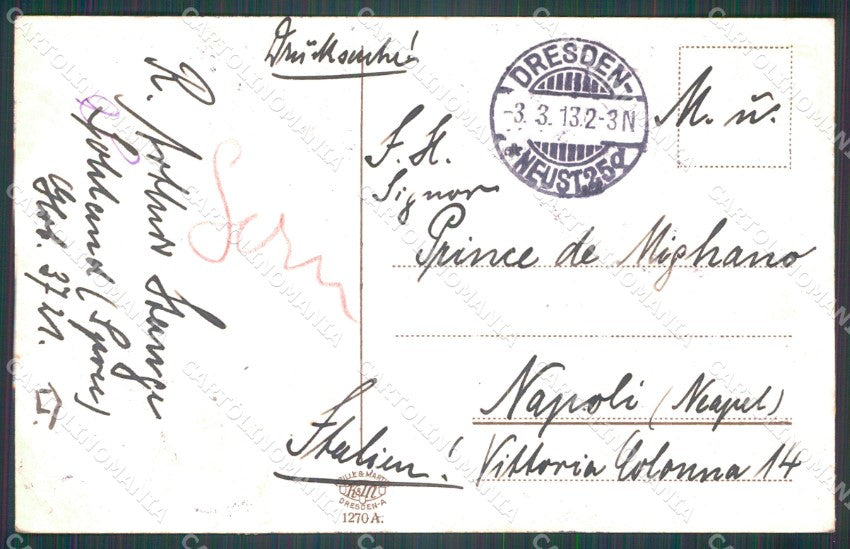 Drucksache!
DRESDEN-
-3.3.13.2-3N
*NEUST.25d
M. ü.
S. H.
Signor
Prince de Mighano
Napoli (Neapel)
Vittoria Colonna 14
Italien!
R. Arthur Stange
Sohland (Spree)
37
WILLE & MARTIN
DRESDEN-A
1270A.
CARTOLINOMANIA